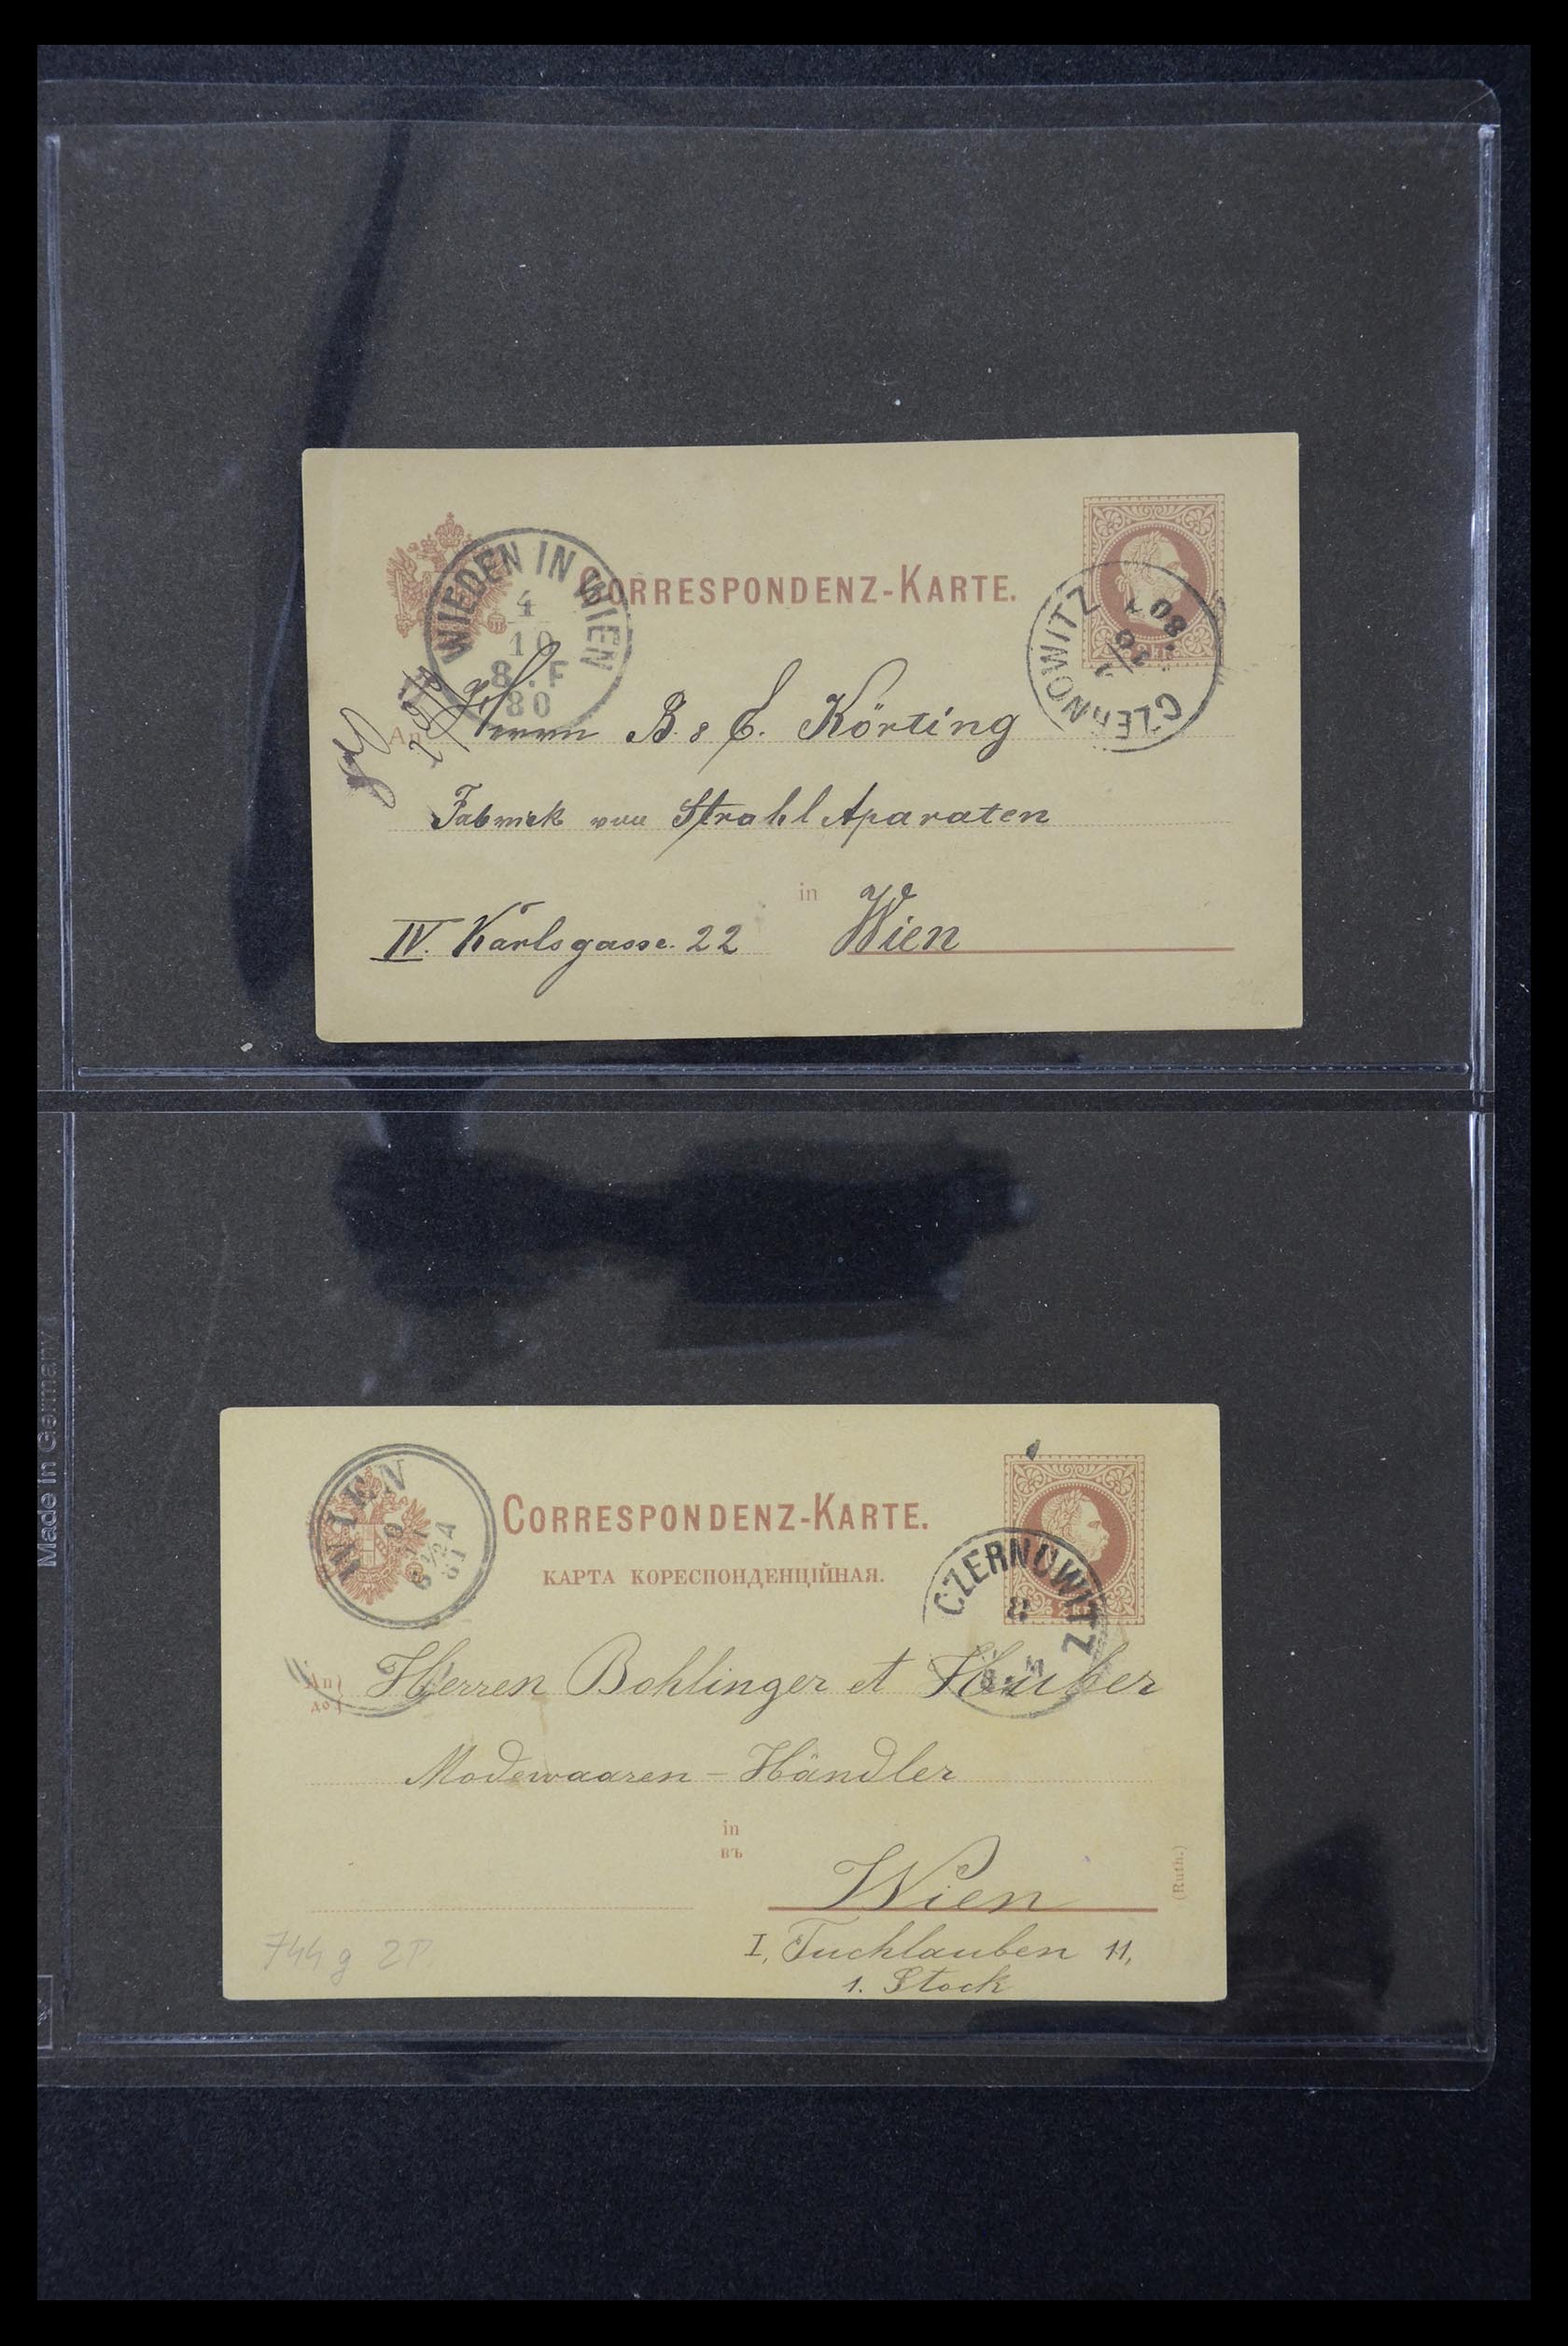 WIEDEN IN WIEN
4
10
8.F
80
CORRESPONDENZ-KARTE.
CZERNOWITZ
80
An
Herrn B. & E. Körting
Fabriek von Strahl Aparaten
in Wien
IV. Karlsgasse. 22
WIEN
CORRESPONDENZ-KARTE.
КАРТА КОРЕСПОНДЕНЦІЙНАЯ.
CZERNOWITZ
8
An
до
Herren Bohlinger et Huber
Modewaaren-Händler
in
въ
Wien
(Ruth.)
I, Tuchlauben 11,
1. Stock
744 g 2P
Made in Germany